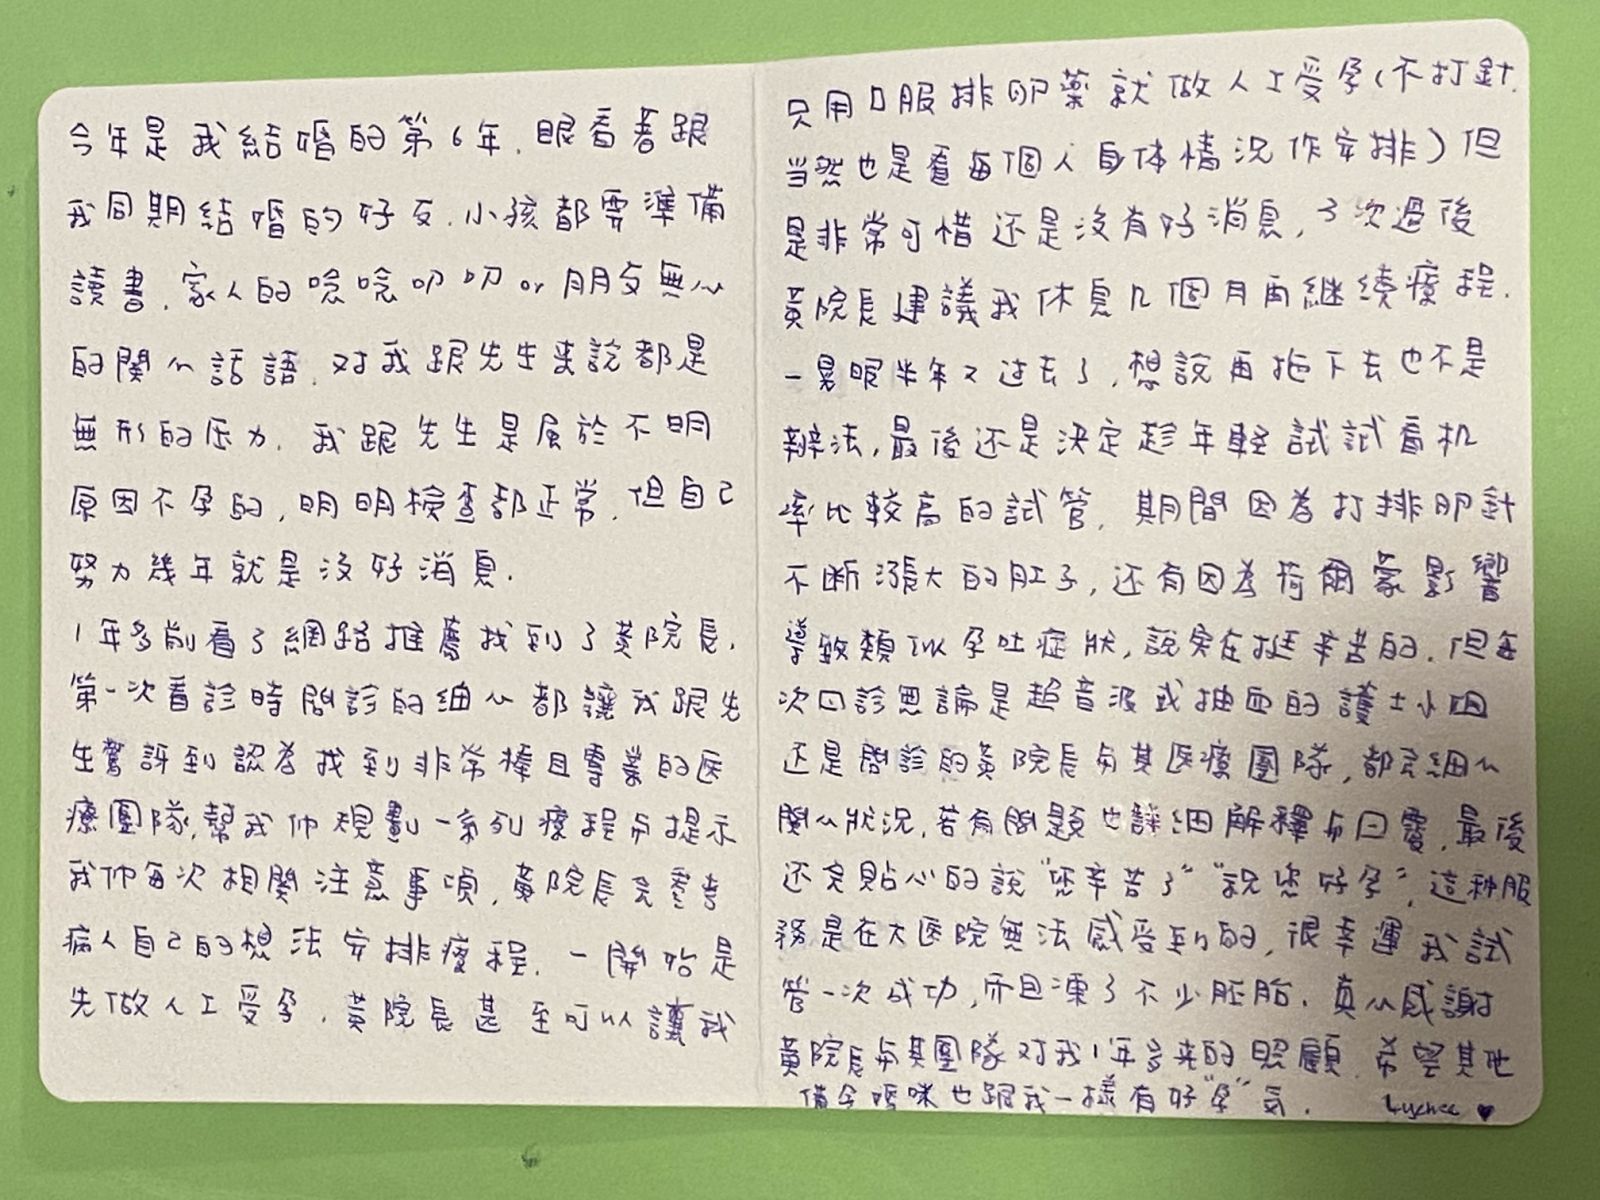 今年是我結婚的第6年.眼看著跟
我同期結婚的好友.小孩都要準備
讀書.家人的唸唸叨叨or朋友無心
的関心話語.对我跟先生来說都是
無形的压力.我跟先生是属於不明
原因不孕的,明明檢查都正常.但自己
努力幾年就是沒好消息.
1年多前看了網路推薦找到了黃院長,
第一次看診時問診的細心都讓我跟先
生驚訝到認為找到非常棒且專業的医
療團隊,幫我们規劃一系列療程与提示
我们每次相関注意事項,黃院長会参考
病人自己的想法安排療程.一開始是
先做人工受孕.黃院長甚至可以讓我
只用口服排卵藥就做人工受孕(不打針.
当然也是看每個人身体情況作安排)但
是非常可惜还是沒有好消息,3次過後
黃院長建議我休息几個月再継続療程.
一晃眼半年又过去了,想說再拖下去也不是
辦法,最後还是決定趁年輕試試看机
率比較高的試管,期間因為打排卵針
不断漲大的肚子,还有因為荷爾蒙影響
導致類似孕吐症狀,說实在挺辛苦的.但每
次回診無論是超音波或抽血的護士小姐
还是問診的黃院長与其医療團隊,都会細心
関心狀況,若有問題也詳細解釋与回覆,最後
还会貼心的說"您辛苦了""祝您好孕",這种服
務是在大医院無法感受到的,很幸運我試
管一次成功,而且凍了不少胚胎.真心感謝
黃院長与其團隊对我1年多来的照顧.希望其他
備孕媽咪也跟我一樣有好"孕"氣.  Lychee ♥